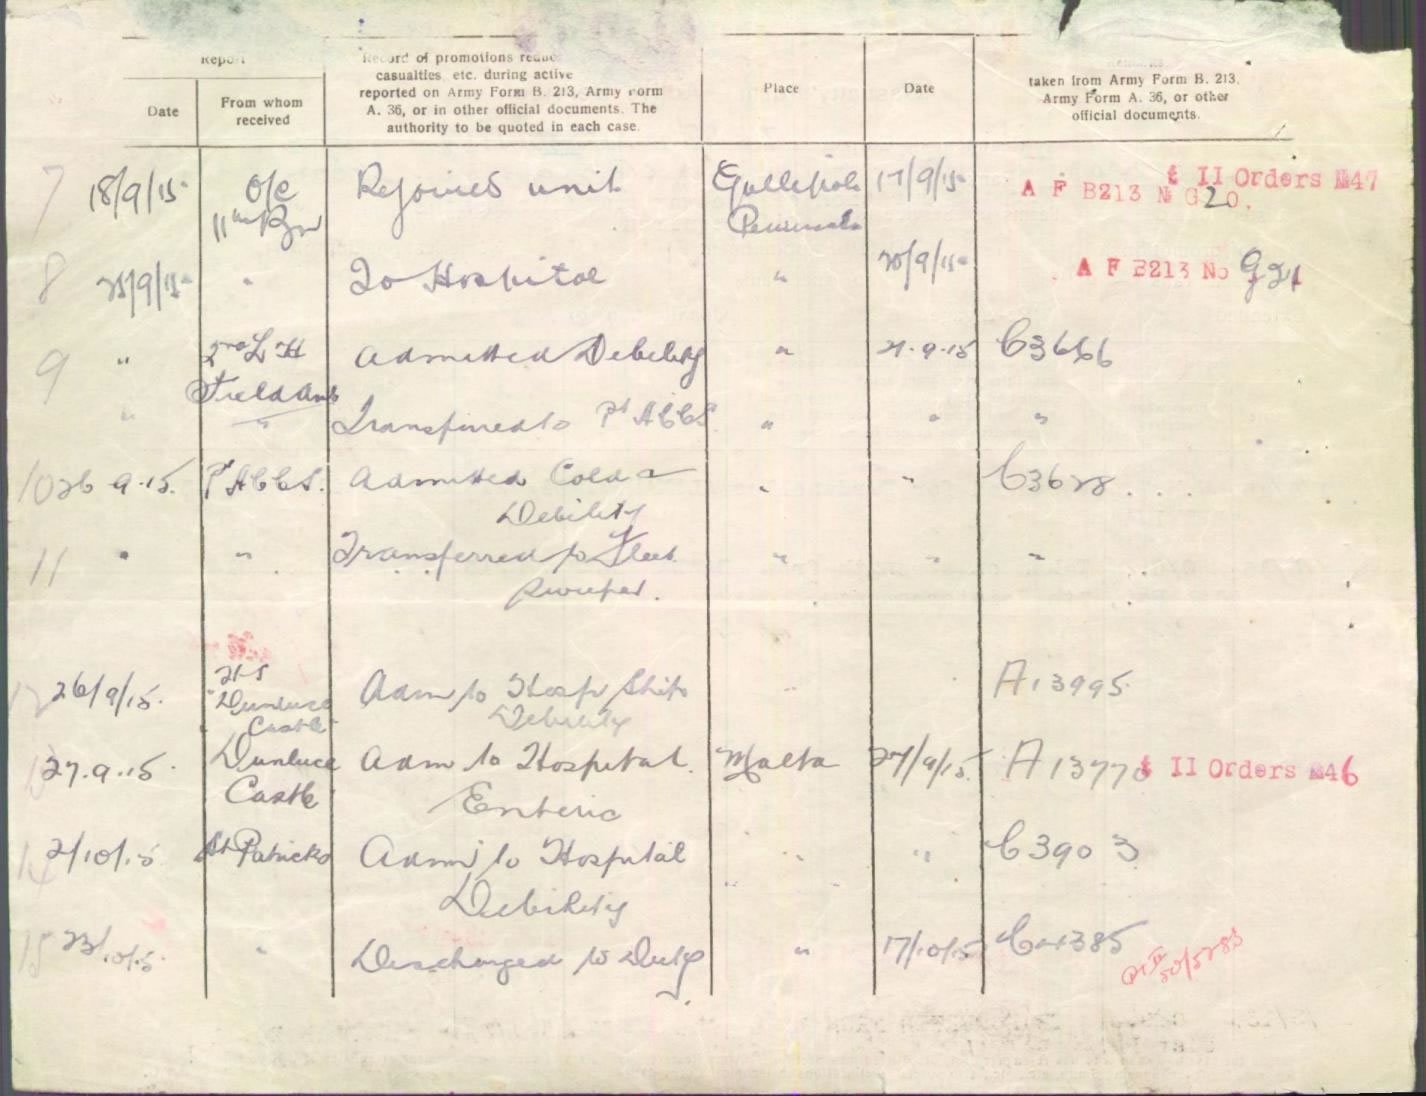 Report
Record of promotions reduc
casualties, etc. during active
reported on Army Form B. 213, Army Form
A. 36, or in other official documents. The
authority to be quoted in each case.
Date
From whom
received
Place
Date
Remarks
taken from Army Form B. 213,
Army Form A. 36, or other
official documents.
7 18/9/15 O/C Rejoined unit Gallipoli 17/9/15 II Orders № 47
11th Bn Peninsula A F B213 № G20.
8 25/9/15 " To Hospital " 20/9/15 A F B213 No G21
9 " 2nd L H Admitted Debility " 21.9.15
Field Amb
" " Transferred to ACCS " " "
10 26 9.15. ACCS. Admitted Cold & " " C3628
Debility
11 " " Transferred to Fleet " " "
Sweeper.
12 26/9/15. HS Adm to Hosp Ship " A13995
"Dunluce Debility
Castle"
13 27.9.15. Dunluce Adm to Hospital. Malta 27/9/15. A13770 II Orders № 46
Castle Enteric
14 2/10/15 St Patricks Adm to Hospital " " C3903
Debility
15 23/10/15 " Discharged to Duty " 17/10/15 C4385